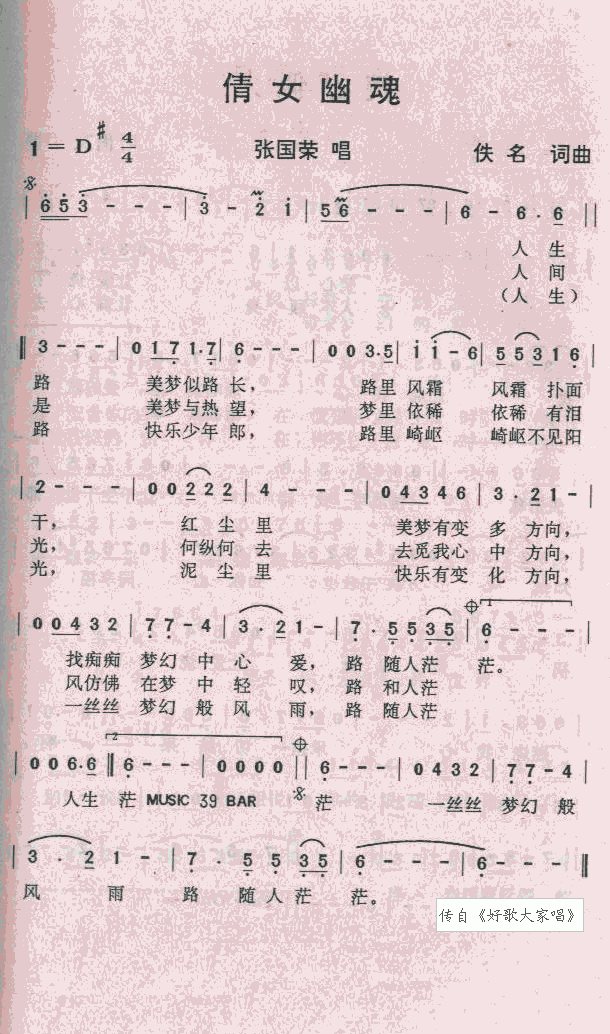 倩女幽魂
1=D# 4/4 张国荣 唱 佚名 词曲
6 5 3 - - - | 3 - 2 i | 5 6 - - - | 6 - 6 . 6 ||
人生
人间
(人生)
3 - - - | 0 1 7 1 . 7 | 6 - - - | 0 0 3 . 5 | i i - 6 | 5 5 3 1 6
路 美梦似路长, 路里风霜 风霜扑面
是 美梦与热望, 梦里依稀 依稀有泪
路 快乐少年郎, 路里崎岖 崎岖不见阳
2 - - - | 0 0 2 2 2 | 4 - - - | 0 4 3 4 6 | 3 . 2 1 - |
干, 红尘里 美梦有变多方向,
光, 何纵何去 去觅我心中方向,
光, 泥尘里 快乐有变化方向,
| 0 0 4 3 2 | 7 7 - 4 | 3 . 2 1 - | 7 . 5 5 3 5 | 1 6 - - - |
找痴痴梦幻中心爱, 路随人茫茫。
风仿佛在梦中轻叹, 路和人茫
一丝丝梦幻般风雨, 路随人茫
| 0 0 6 . 6 || 2 6 - - - | 0 0 0 0 || 6 - - - | 0 4 3 2 | 7 7 - 4
人生茫 MUSIC 39 BAR 茫 一丝丝梦幻般
| 3 . 2 1 - | 7 . 5 5 3 5 | 6 - - - | 6 - - - ||
风 雨 路 随人茫 茫。
传自《好歌大家唱》